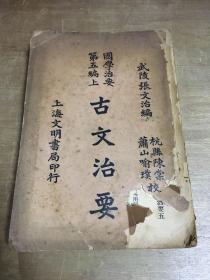 武陵張文治編
杭縣陳棠
蕭山喻璞
校
國學治要
第五編上
古文治要
上海文明書局印行